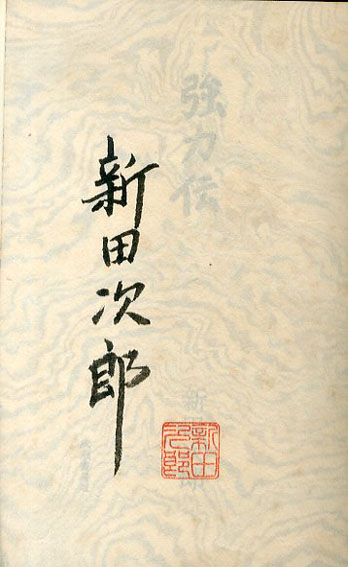 強力伝
新田次郎
新田
次郎